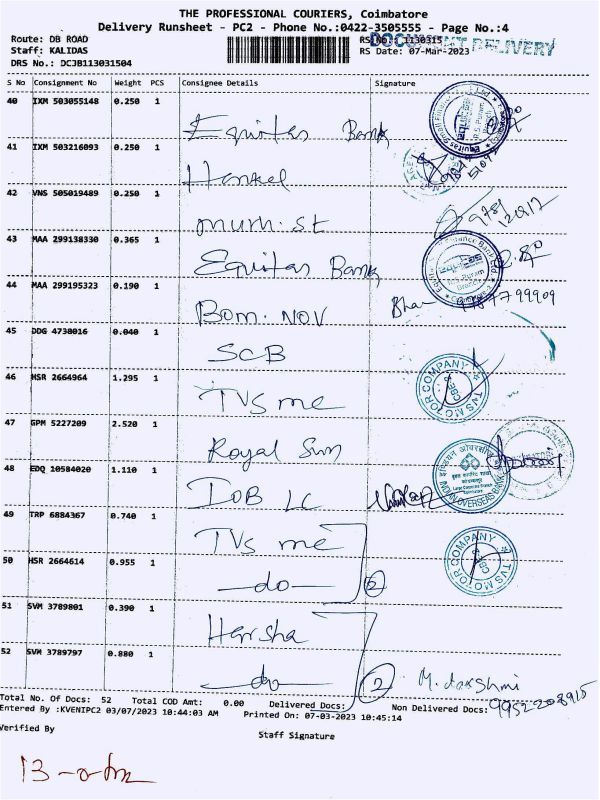 THE PROFESSIONAL COURIERS, Coimbatore
Delivery Runsheet - PC2 - Phone No.:0422-3505555 - Page No.:4
Route: DB ROAD
RS No.: 1130315
DOCUMENT DELIVERY
Staff: KALIDAS
RS Date: 07-Mar-2023
DRS No.: DCJB113031504
S No Consignment No Weight PCS Consignee Details Signature
40 IXM 503055148 0.250 1 Equitas Bank
41 IXM 503216093 0.250 1 Henkel
42 VNS 505019489 0.250 1
43 MAA 299138330 0.365 1 Equitas Bank
44 MAA 299195323 0.190 1 Bom. NOV
45 DDG 4738016 0.040 1 SCB
46 HSR 2664964 1.295 1 TVS mc
TVS MOTOR COMPANY
47 GPM 5227209 2.520 1 Royal Sun
48 EDQ 10584020 1.110 1 IOB LC
INDIAN OVERSEAS BANK
49 TRP 6884367 0.740 1 TVS mc
50 HSR 2664614 0.955 1 —do— 2
TVS MOTOR COMPANY
51 SVM 3789801 0.390 1 Harsha
52 SVM 3789797 0.880 1 —do— 2 M. Lakshmi
9952208915
Total No. Of Docs: 52 Total COD Amt: 0.00 Delivered Docs: Non Delivered Docs:
Entered By :KVENIPC2 03/07/2023 10:44:03 AM Printed On: 07-03-2023 10:45:14
Verified By
Staff Signature